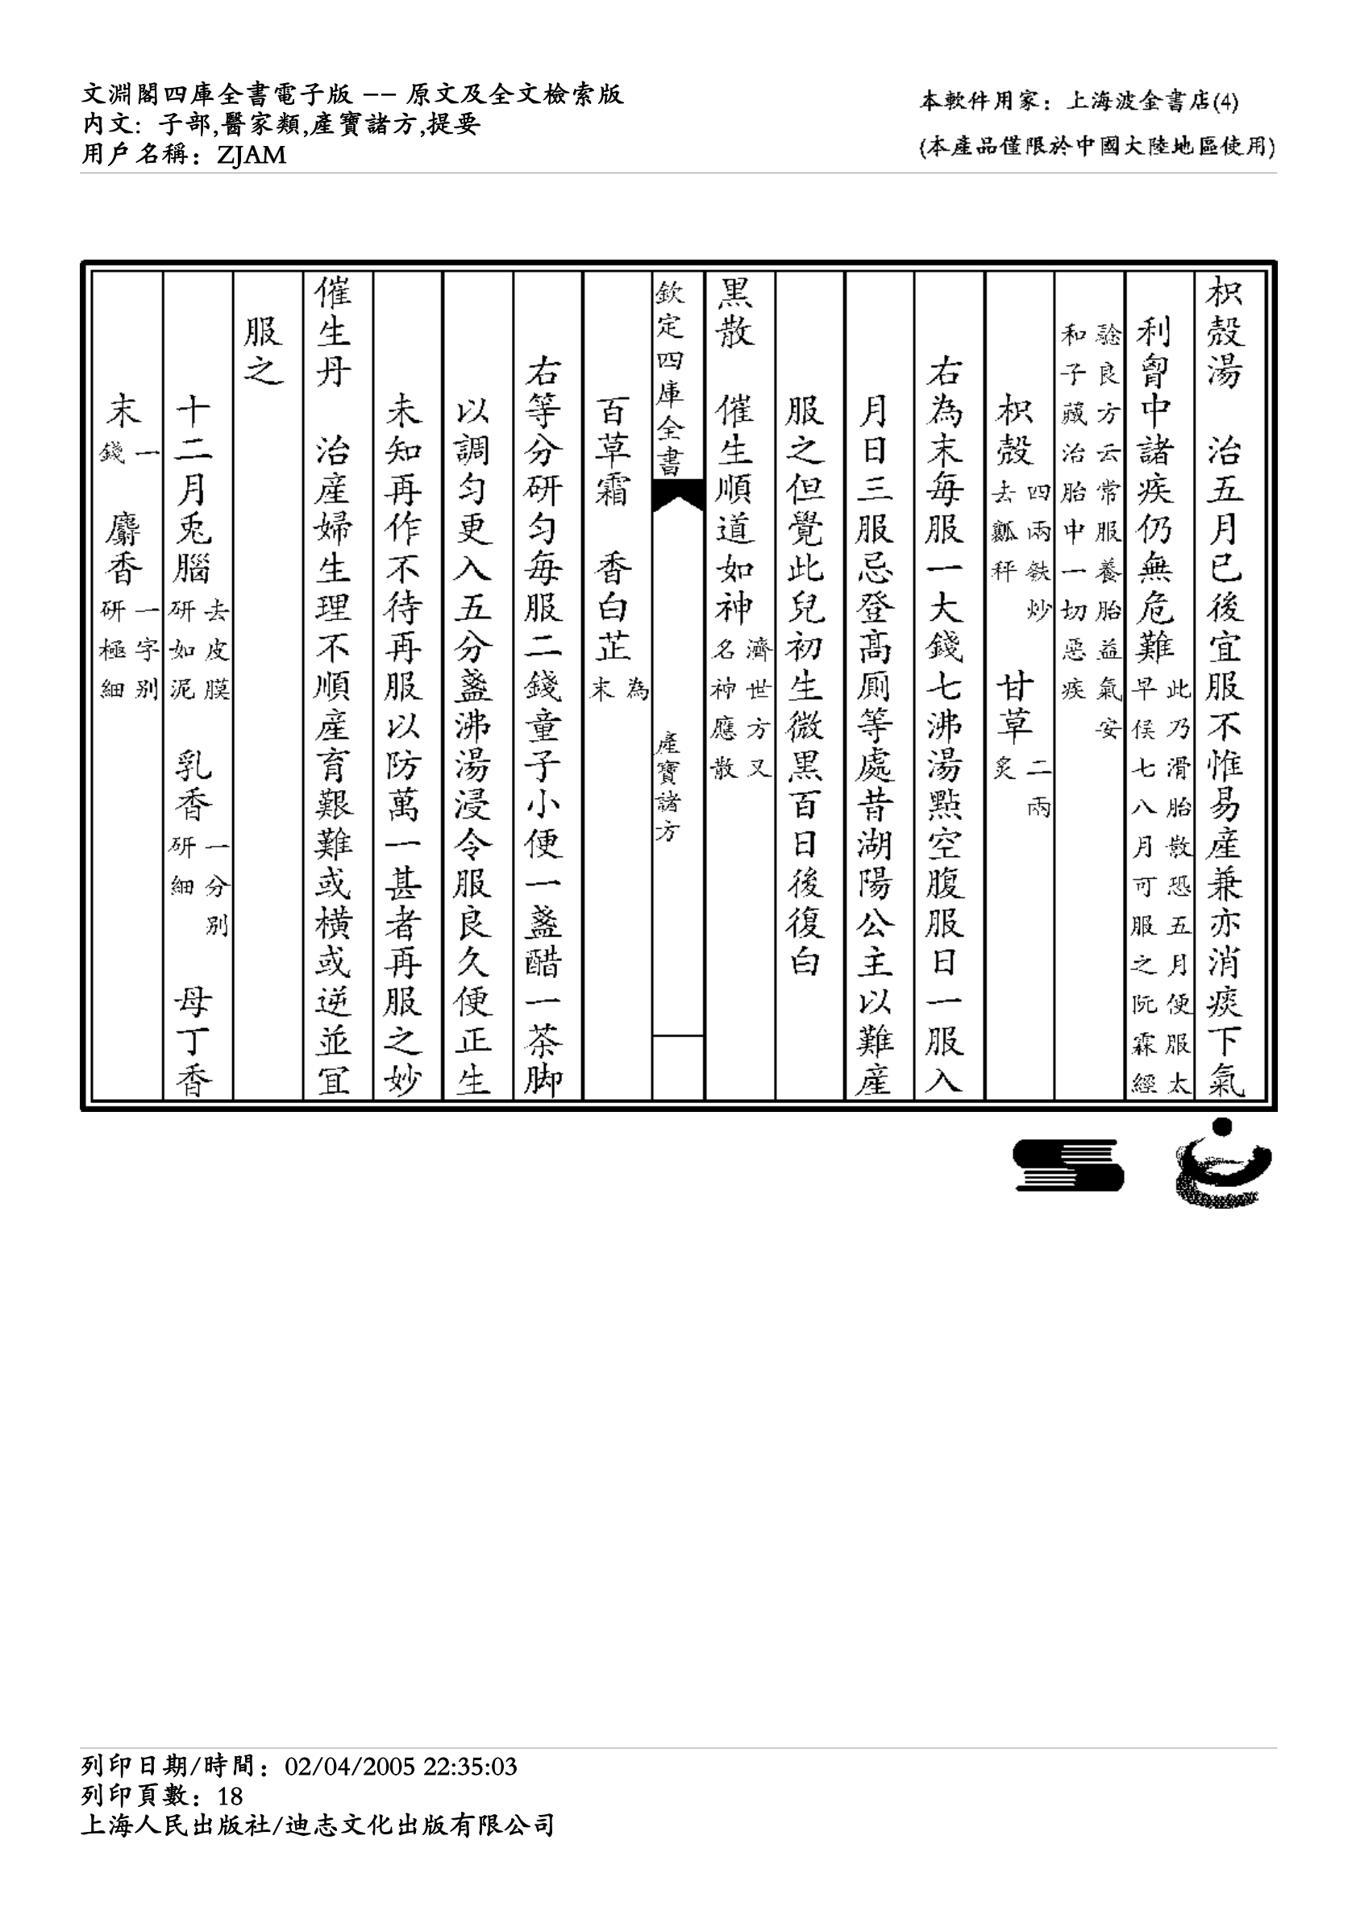 文淵閣四庫全書電子版 -- 原文及全文檢索版
内文: 子部,醫家類,產寶諸方,提要
用戶名稱: ZJAM
本軟件用家: 上海波金書店(4)
(本產品僅限於中國大陸地區使用)
枳殼湯 治五月已後宜服不惟易產兼亦消痰下氣
利胷中諸疾仍無危難此乃滑胎散恐五月便服太早候七八月可服之阮霖經
驗良方云常服養胎益氣安和子藏治胎中一切惡疾
枳殼四兩麩炒去瓤秤 甘草二兩炙
右為末每服一大錢七沸湯點空腹服日一服入
月日三服忌登髙厠等處昔湖陽公主以難產
服之但覺此兒初生微黑百日後復白
黑散 催生順道如神濟世方又名神應散
欽定四庫全書
產寶諸方
百草霜 香白芷為末
右等分研匀每服二錢童子小便一盞醋一茶脚
以調匀更入五分盞沸湯浸令服良久便正生
未知再作不待再服以防萬一甚者再服之妙
催生丹 治產婦生理不順產育艱難或橫或逆並冝
服之
十二月兎腦去皮膜研如泥 乳香一分别研細 母丁香
末一錢 麝香一字别研極細
列印日期/時間: 02/04/2005 22:35:03
列印頁數: 18
上海人民出版社/迪志文化出版有限公司